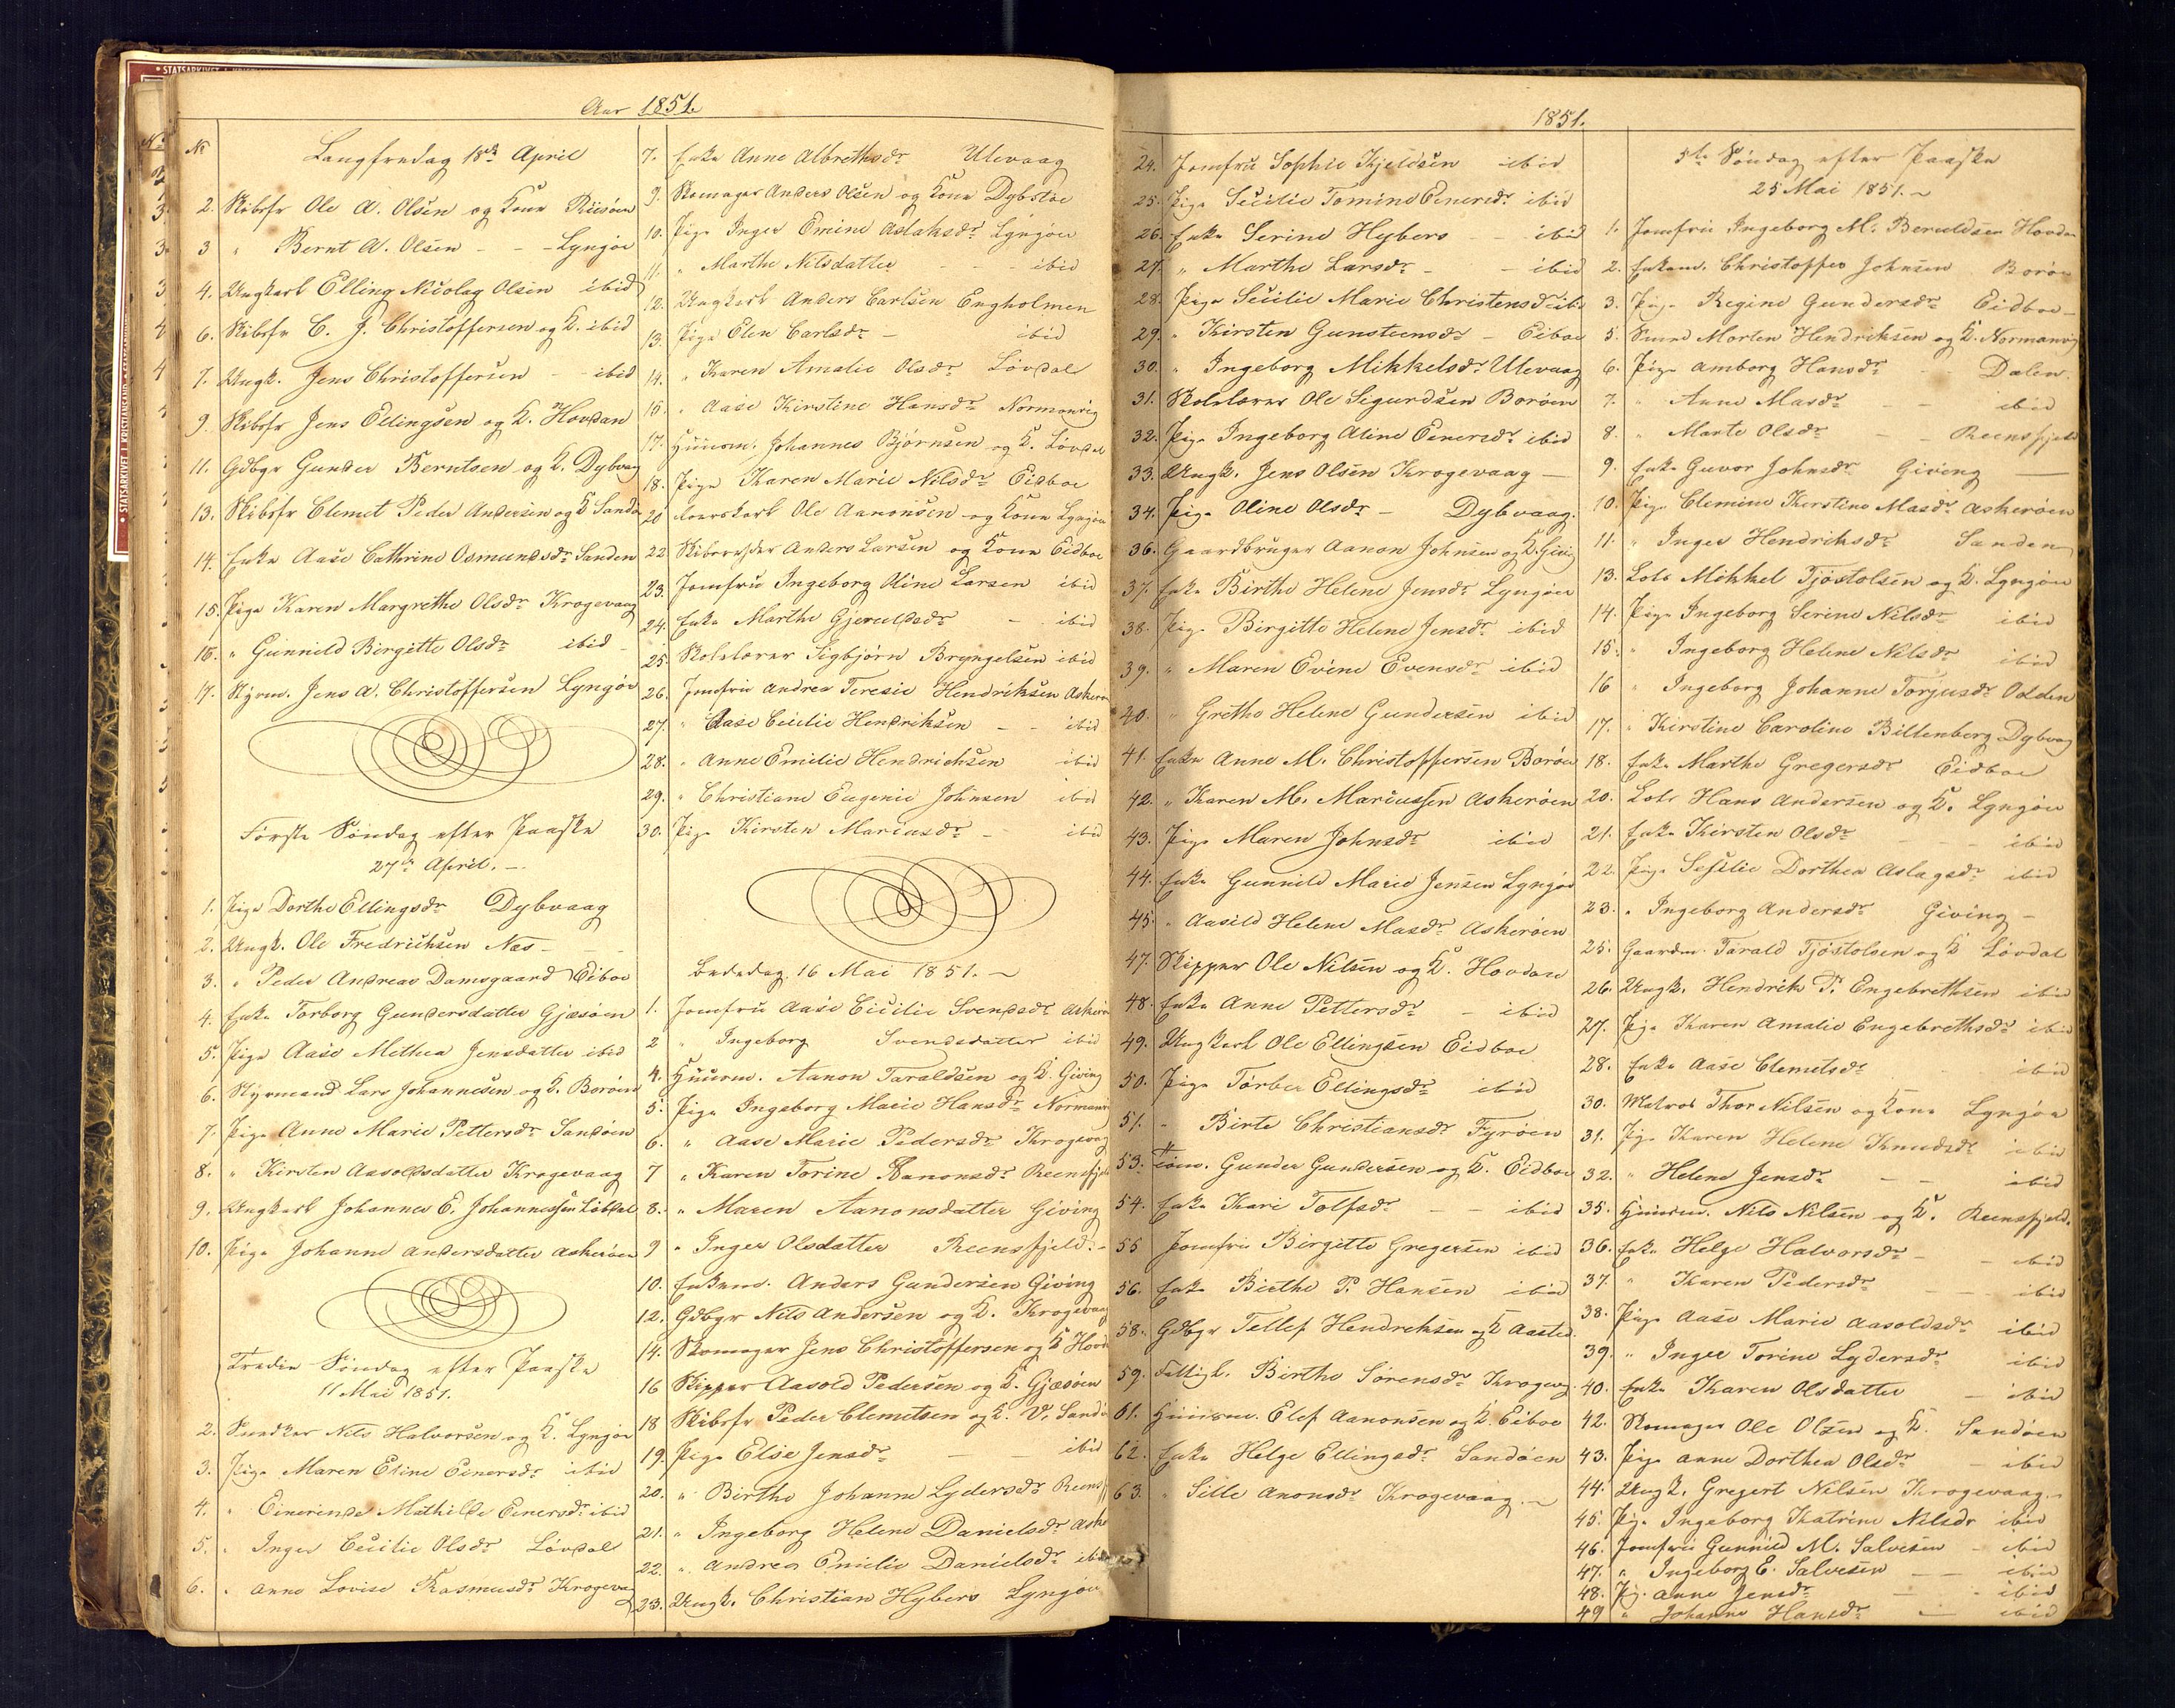 Aar 1851.
No
Langfredag 18de April
2. Skibsfr Ole A. Olsen og Kone Riisøen
3 " Bernt A. Olsen - - - Lyngøe
4. Ungkarl Elling Nicolay Olsen ibid
6. Skibsfr C. J. Christoffersen og K. ibid
7. Ungk. Jens Christoffersen - - ibid
9. Skibsfr Jens Ellingsen og K. Hovdan
11. Gdbgr Gunder Berntsen og K. Dybvaag
13. Skibsfr Clemet Peder Andersen og K Sandøen
14. Enke Aase Cathrine Osmundsdr Sanden
15. Pige Karen Margrethe Olsdr Krogevaag
16. " Gunnild Birgitte Olsdr ibid
17. Styrm. Jens A. Christoffersen Lyngøe
Første Søndag efter Paaske
27de April. -
1. Pige Dorthe Ellingsdr Dybvaag
2. Ungk. Ole Fredrichsen Næs -
3. " Peder Andreas Damsgaard Eiboe
4. Enke Torborg Gundersdatter Gjæsøen
5. Pige Aase Mathea Jensdatter ibid
6. Styrmand Lars Johannesen og K. Borøen
7. Pige Anne Marie Pettersdr Sandøen
8. " Kirsten Aasoldsdatter Krogevaag
9. Ungkarl Johannes E. Johannessen Løvdal
10. Pige Johanne Andersdatter Askerøen
Tredie Søndag efter Paaske
11 Mai 1851.
2. Snedker Nils Halvorsen og K. Lyngøe
3. Pige Maren Eline Einersdr ibid
4. " Einerinde Mathilde Einersdr ibid
5. " Inger Cecilie Olsdr Løvdal
6. " Anne Lovise Rasmusdr Krogevaag
7. Enke Anne Albrethsdr Ulevaag
9. Skomager Anders Olsen og Kone Dybstøe
10. Pige Inger Emine Aslaksdr Lyngøen
11. " Marthe Nilsdatter - - - ibid
12. Ungkarl Anders Carlsen Engholmen
13. Pige Elen Carlsdr - ibid
14. " Karen Amalie Olsdr Løvdal
15. " Aase Kirstine Hansdr Normanvig
17. Huusm. Johannes Bjørnsen og K. Løvdal
18. Pige Karen Marie Nilsdr Eidboe
20 Ole Aanonsen og Kone Lyngøen
22 Anders Larsen og Kone Eidboe
23. Jomfru Ingeborg Oline Larsen ibid
24. Enke Marthe Gjeruldsdr - ibid
25. Skolelærer Sigbjørn Bryngelsen ibid
26. Jomfru Andrea Teresie Hendriksen Askerøen
27. " Aase Cecilie Hendriksen - - ibid
28. " Anne Emilie Hendrichsen ibid
29. " Christiane Eugenie Johnsen ibid
30. Pige Kirsten Mariusdr - ibid
Bededag 16 Mai 1851. -
1. Jomfru Aase Cicilie Svendsdr Askerøe
2 " Ingeborg Svendsdatter ibid
4. Huusm. Aanon Taraldsen og K. Giving
5. Pige Ingeborg Marie Hansdr Normanvig
6. " Aase Marie Pedersdr Krogevaag
7 " Karen Torine Aanonsdr Reensfjeld
8. " Maren Aanonsdatter Giving
9 " Inger Olsdatter Reensfjeld. -
10. Enkem. Anders Gundersen Giving
12. Gdbgr Nils Andersen og K. Krogevaag
14. Skomager Jens Christoffersen og K Hovdan
16 Skipper Aasold Pedersen og K. Gjæsøen
18 Skibsfr Peder Clemetsen og K. V. Sandøen
19. Pige Elise Jensdr - ibid
20. " Birthe Johanne Lydersdr Reensfj
21. " Ingeborg Helene Danielsdr Aske
22. " Andrea Emilie Danielsdr ibid
23. Ungk. Christian Hybers Lyngøe
1851.
24. Jomfru Sophie Kjeldsen ibid
25. Pige Secilie Tomine Einersdr ibid
26. Enke Serine Hybers - - ibid
27. " Marthe Larsdr - - ibid
28. Pige Secilie Marie Christensdr ibi
29. " Kirsten Gunsteensdr - Eiboe
30. " Ingeborg Mikkelsdr Ulevaag
31. Skolelærer Ole Sigurdsen Borøen
32. Pige Ingeborg Aline Einersdr ibid
33. Ungk. Jens Olsen Krogevaag -
34. Pige Oline Olsdr - Dybvaag.
36. Gaardbruger Aanon Johnsen og K. Giving
37. Enke Birthe Helene Jensdr Lyngøen
38. Pige Birgitte Helene Jensdr ibid
39. " Maren Evine Evensdr ibid
40. " Grethe Helene Gundersen ibid
41. Enke Anne M. Christoffersen Borøen
42. " Karen M. Mariussen Askerøen
43. Pige Maren Johnsdr ibid
44. Enke Gunnild Marie Jensen Lyngøe
45. " Aasild Helene Masdr Askerøen
47. Skipper Ole Nilsen og K. Hovdan
48. Enke Anne Pettersdr - ibid
49. Ungkarl Ole Ellingsen Eidboe
50. Pige Tørber Ellingsdr ibid
51. " Birte Christiansdr Fyrøen
53. Gunder Gundersen og K. Eidboe
54. Enke Kari Tolfsdr - - ibid
55 Jomfru Birgitte Gregersen ibid
56. Enke Birthe P. Hansen ibid
58. Gdbgr Tellef Hendriksen og K Aasted
59. Fattigl. Birthe Sørensdr Krogevaag
61. Huusm. Elef Aanonsen og K. Eiboe
62. Enke Helge Ellingsdr Sandøen
63. " Sille Anonsdr Krogevaag. -
5te Søndag efter Paaske
25 Mai 1851. -
1. Jomfru Ingeborg M. Beruldsen Hovdan
2. Enkem. Christoffer Johnsen Borøen
3. Pige Regine Gundersdr Eidboe -
5. Smed Morten Hendriksen og K. Normanvig
6. Pige Amborg Hansdr - Dalen.
7. " Anne Masdr - - ibid
8. " Marte Olsdr - - Reensfjeld
9. Enke Guvor Johnsdr Giving
10. Pige Clemine Kerstine Masdr Askerøen
11. " Inger Hendriksdr Sanden
13. Lods Mikkel Tjøstolsen og K. Lyngøen
14. Pige Ingeborg Serine Nilsdr ibid
15. " Ingeborg Helene Nilsdr ibid
16 " Ingeborg Johanne Torjusdr Odden
17. " Kirstine Caroline Billenberg Dybvaag
18. Enke Marthe Gregersdr Eidboe
20. Lods Hans Andersen og K. Lyngøen
21. Enke Kirsten Olsdr - - - ibid
22. Pige Sesilie Dorthea Aslagsdr ibid
23. " Ingeborg Andersdr Giving -
25. Gaardm. Tarald Tjøstolsen og K Løvdal
26. Ungk. Hendrik P. Engebrethsen ibid
27. Pige Karen Amalie Engebrethsdr ibid
28. Enke Aase Clemetsdr ibid
30. Matros Thor Nilsen og Kone Lyngøen
31. Pige Karen Helene Knudsdr ibid
32. " Helene Jensdr - - ibid
35. Huusm. Nils Nilsen og K. Reensfjeld.
36. Enke Helge Halvorsdr - - ibid
37. " Karen Pedersdr - - ibid
38. Pige Aase Marie Aasoldsdr ibid
39. " Inger Torine Lydersdr ibid
40. Enke Karen Olsdatter - ibid
42. Skomager Ole Olsen og K. Sandøen
43. Pige Anne Dorthea Olsdr - ibid
44. Ungk. Gregert Nilsen Krogevaag. -
45. Pige Ingeborg Katrine Nilsdr ibid
46. Jomfru Gunnild M. Salvesen - ibid
47. " Ingeborg E. Salvesen - - ibid
48. Pig. Anne Jensdr - - ibid
49 " Johanne Hansdr - ibid